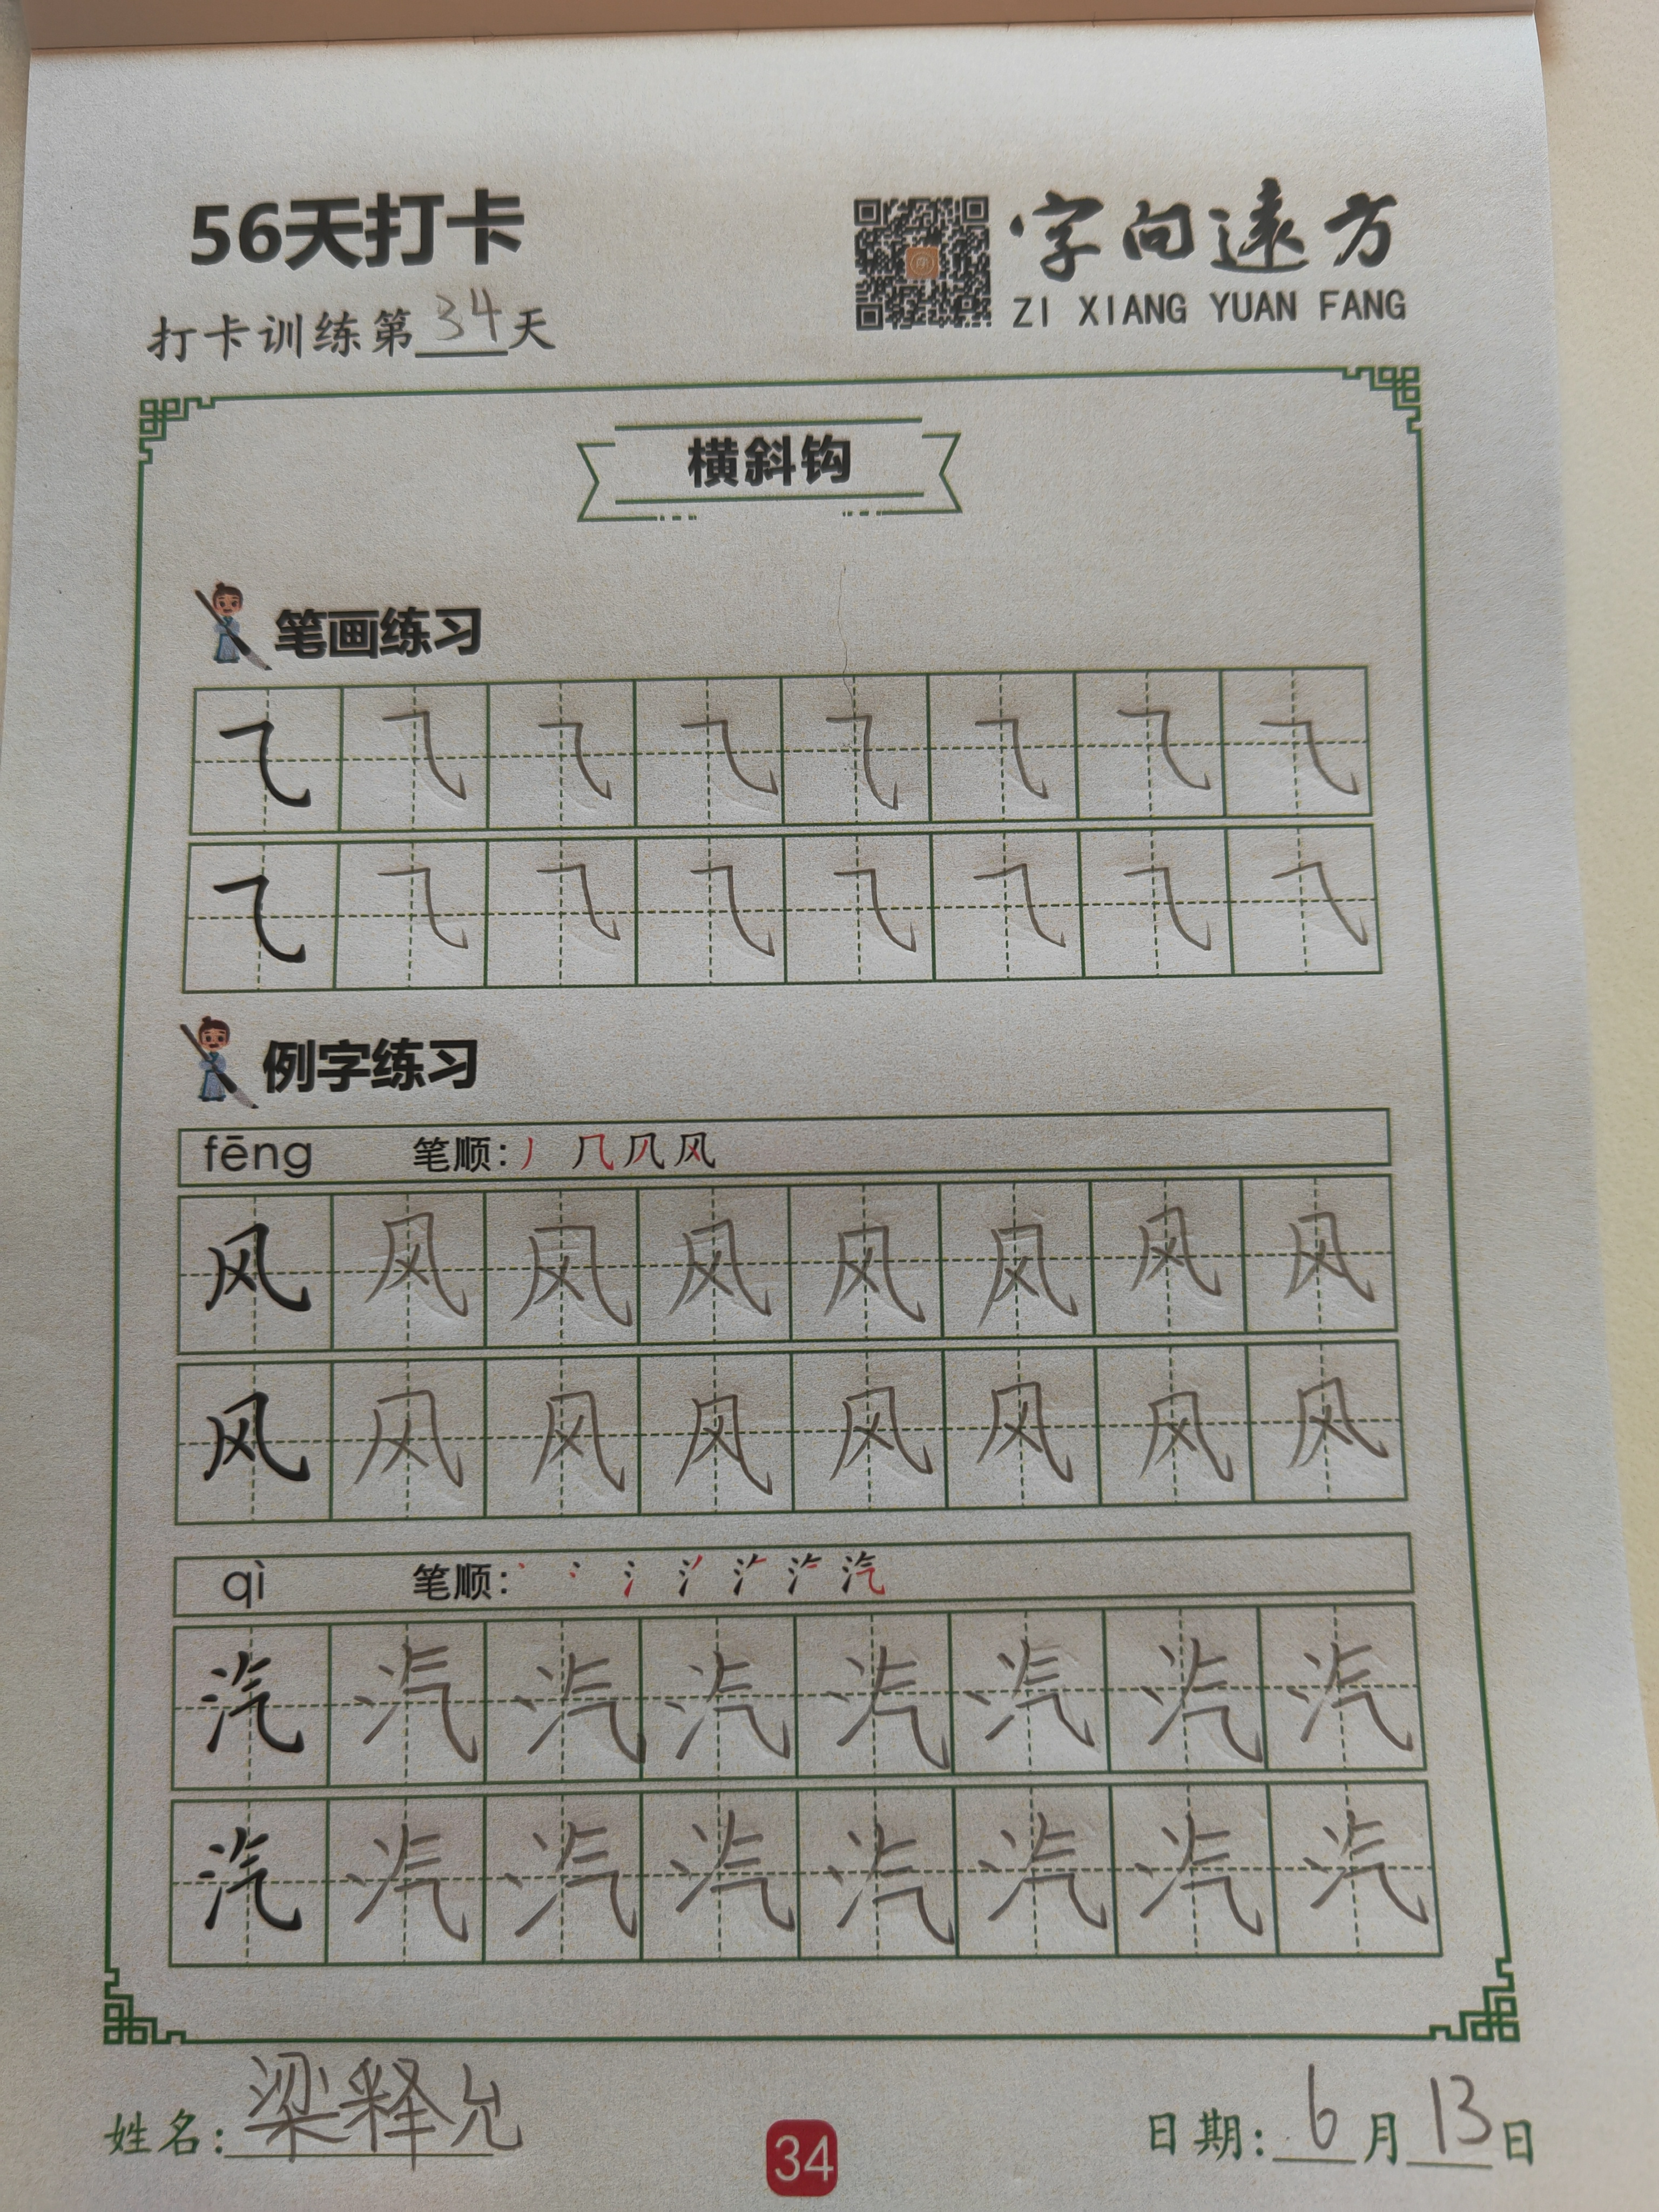 56天打卡
字向遠方
ZI XIANG YUAN FANG
打卡训练第34天
横斜钩
笔画练习
⺄ ⺄ ⺄ ⺄ ⺄ ⺄ ⺄ ⺄
⺄ ⺄ ⺄ ⺄ ⺄ ⺄ ⺄ ⺄
例字练习
fēng 笔顺: 丿 几 风 风
风 风 风 风 风 风 风 风
风 风 风 风 风 风 风 风
qì 笔顺: 汽
汽 汽 汽 汽 汽 汽 汽 汽
汽 汽 汽 汽 汽 汽 汽 汽
姓名: 梁释允
34
日期: 6月13日